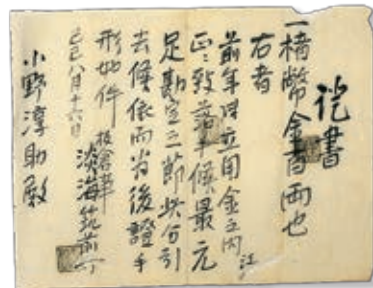 證書
一楮幣金壹両也
右者
前年用立用金之内江
正ニ致落手候最元
足勘定之節此分引
去候依而為後證手
形如件
己巳八月十六日
板倉華
淡海筑前
小野淳助殿